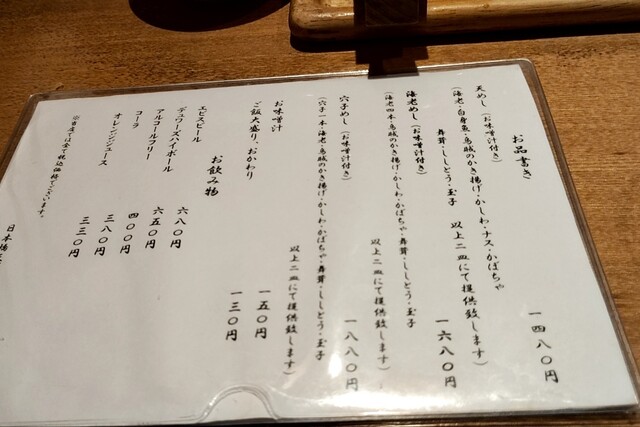 お品書き
天めし(お味噌汁付き)
(海老・白身魚・烏賊のかき揚げ・かしわ・ナス・かぼちゃ
舞茸・ししとう・玉子 以上二皿にて提供致します)
一四八〇円
海老めし(お味噌汁付き)
(海老四本・烏賊のかき揚げ・かしわ・かぼちゃ・舞茸・ししとう・玉子
以上二皿にて提供致します)
一六八〇円
穴子めし(お味噌汁付き)
(穴子一本・海老・烏賊のかき揚げ・かしわ・かぼちゃ・舞茸・ししとう・玉子
以上二皿にて提供致します)
一八八〇円
お味噌汁 一五〇円
ご飯大盛り、おかわり 一三〇円
お飲み物
エビスビール 六八〇円
デュワーズハイボール 六五〇円
アルコールフリー 四〇〇円
コーラ 三八〇円
オレンジジュース 三三〇円
※当店では全て税込価格でございます。
日本橋